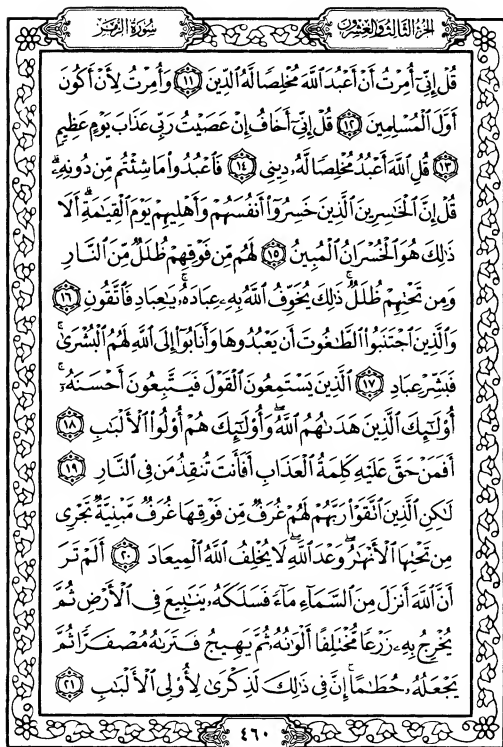 الجزء الثالث والعشرون
سورة الزمر
قُلْ إِنِّىٓ أُمِرْتُ أَنْ أَعْبُدَ ٱللَّهَ مُخْلِصًا لَّهُ ٱلدِّينَ ۝١١ وَأُمِرْتُ لِأَنْ أَكُونَ
أَوَّلَ ٱلْمُسْلِمِينَ ۝١٢ قُلْ إِنِّىٓ أَخَافُ إِنْ عَصَيْتُ رَبِّى عَذَابَ يَوْمٍ عَظِيمٍ
۝١٣ قُلِ ٱللَّهَ أَعْبُدُ مُخْلِصًا لَّهُۥ دِينِى ۝١٤ فَٱعْبُدُوا۟ مَا شِئْتُم مِّن دُونِهِۦ ۗ
قُلْ إِنَّ ٱلْخَٰسِرِينَ ٱلَّذِينَ خَسِرُوٓا۟ أَنفُسَهُمْ وَأَهْلِيهِمْ يَوْمَ ٱلْقِيَٰمَةِ ۗ أَلَا
ذَٰلِكَ هُوَ ٱلْخُسْرَانُ ٱلْمُبِينُ ۝١٥ لَهُم مِّن فَوْقِهِمْ ظُلَلٌ مِّنَ ٱلنَّارِ
وَمِن تَحْتِهِمْ ظُلَلٌ ۚ ذَٰلِكَ يُخَوِّفُ ٱللَّهُ بِهِۦ عِبَادَهُۥ ۚ يَٰعِبَادِ فَٱتَّقُونِ ۝١٦
وَٱلَّذِينَ ٱجْتَنَبُوا۟ ٱلطَّٰغُوتَ أَن يَعْبُدُوهَا وَأَنَابُوٓا۟ إِلَى ٱللَّهِ لَهُمُ ٱلْبُشْرَىٰ ۚ
فَبَشِّرْ عِبَادِ ۝١٧ ٱلَّذِينَ يَسْتَمِعُونَ ٱلْقَوْلَ فَيَتَّبِعُونَ أَحْسَنَهُۥٓ ۚ
أُو۟لَٰٓئِكَ ٱلَّذِينَ هَدَىٰهُمُ ٱللَّهُ ۖ وَأُو۟لَٰٓئِكَ هُمْ أُو۟لُوا۟ ٱلْأَلْبَٰبِ ۝١٨
أَفَمَنْ حَقَّ عَلَيْهِ كَلِمَةُ ٱلْعَذَابِ أَفَأَنتَ تُنقِذُ مَن فِى ٱلنَّارِ ۝١٩
لَٰكِنِ ٱلَّذِينَ ٱتَّقَوْا۟ رَبَّهُمْ لَهُمْ غُرَفٌ مِّن فَوْقِهَا غُرَفٌ مَّبْنِيَّةٌ تَجْرِى
مِن تَحْتِهَا ٱلْأَنْهَٰرُ ۖ وَعْدَ ٱللَّهِ ۖ لَا يُخْلِفُ ٱللَّهُ ٱلْمِيعَادَ ۝٢٠ أَلَمْ تَرَ
أَنَّ ٱللَّهَ أَنزَلَ مِنَ ٱلسَّمَآءِ مَآءً فَسَلَكَهُۥ يَنَٰبِيعَ فِى ٱلْأَرْضِ ثُمَّ
يُخْرِجُ بِهِۦ زَرْعًا مُّخْتَلِفًا أَلْوَٰنُهُۥ ثُمَّ يَهِيجُ فَتَرَىٰهُ مُصْفَرًّا ثُمَّ
يَجْعَلُهُۥ حُطَٰمًا ۚ إِنَّ فِى ذَٰلِكَ لَذِكْرَىٰ لِأُو۟لِى ٱلْأَلْبَٰبِ ۝٢١
٤٦٠